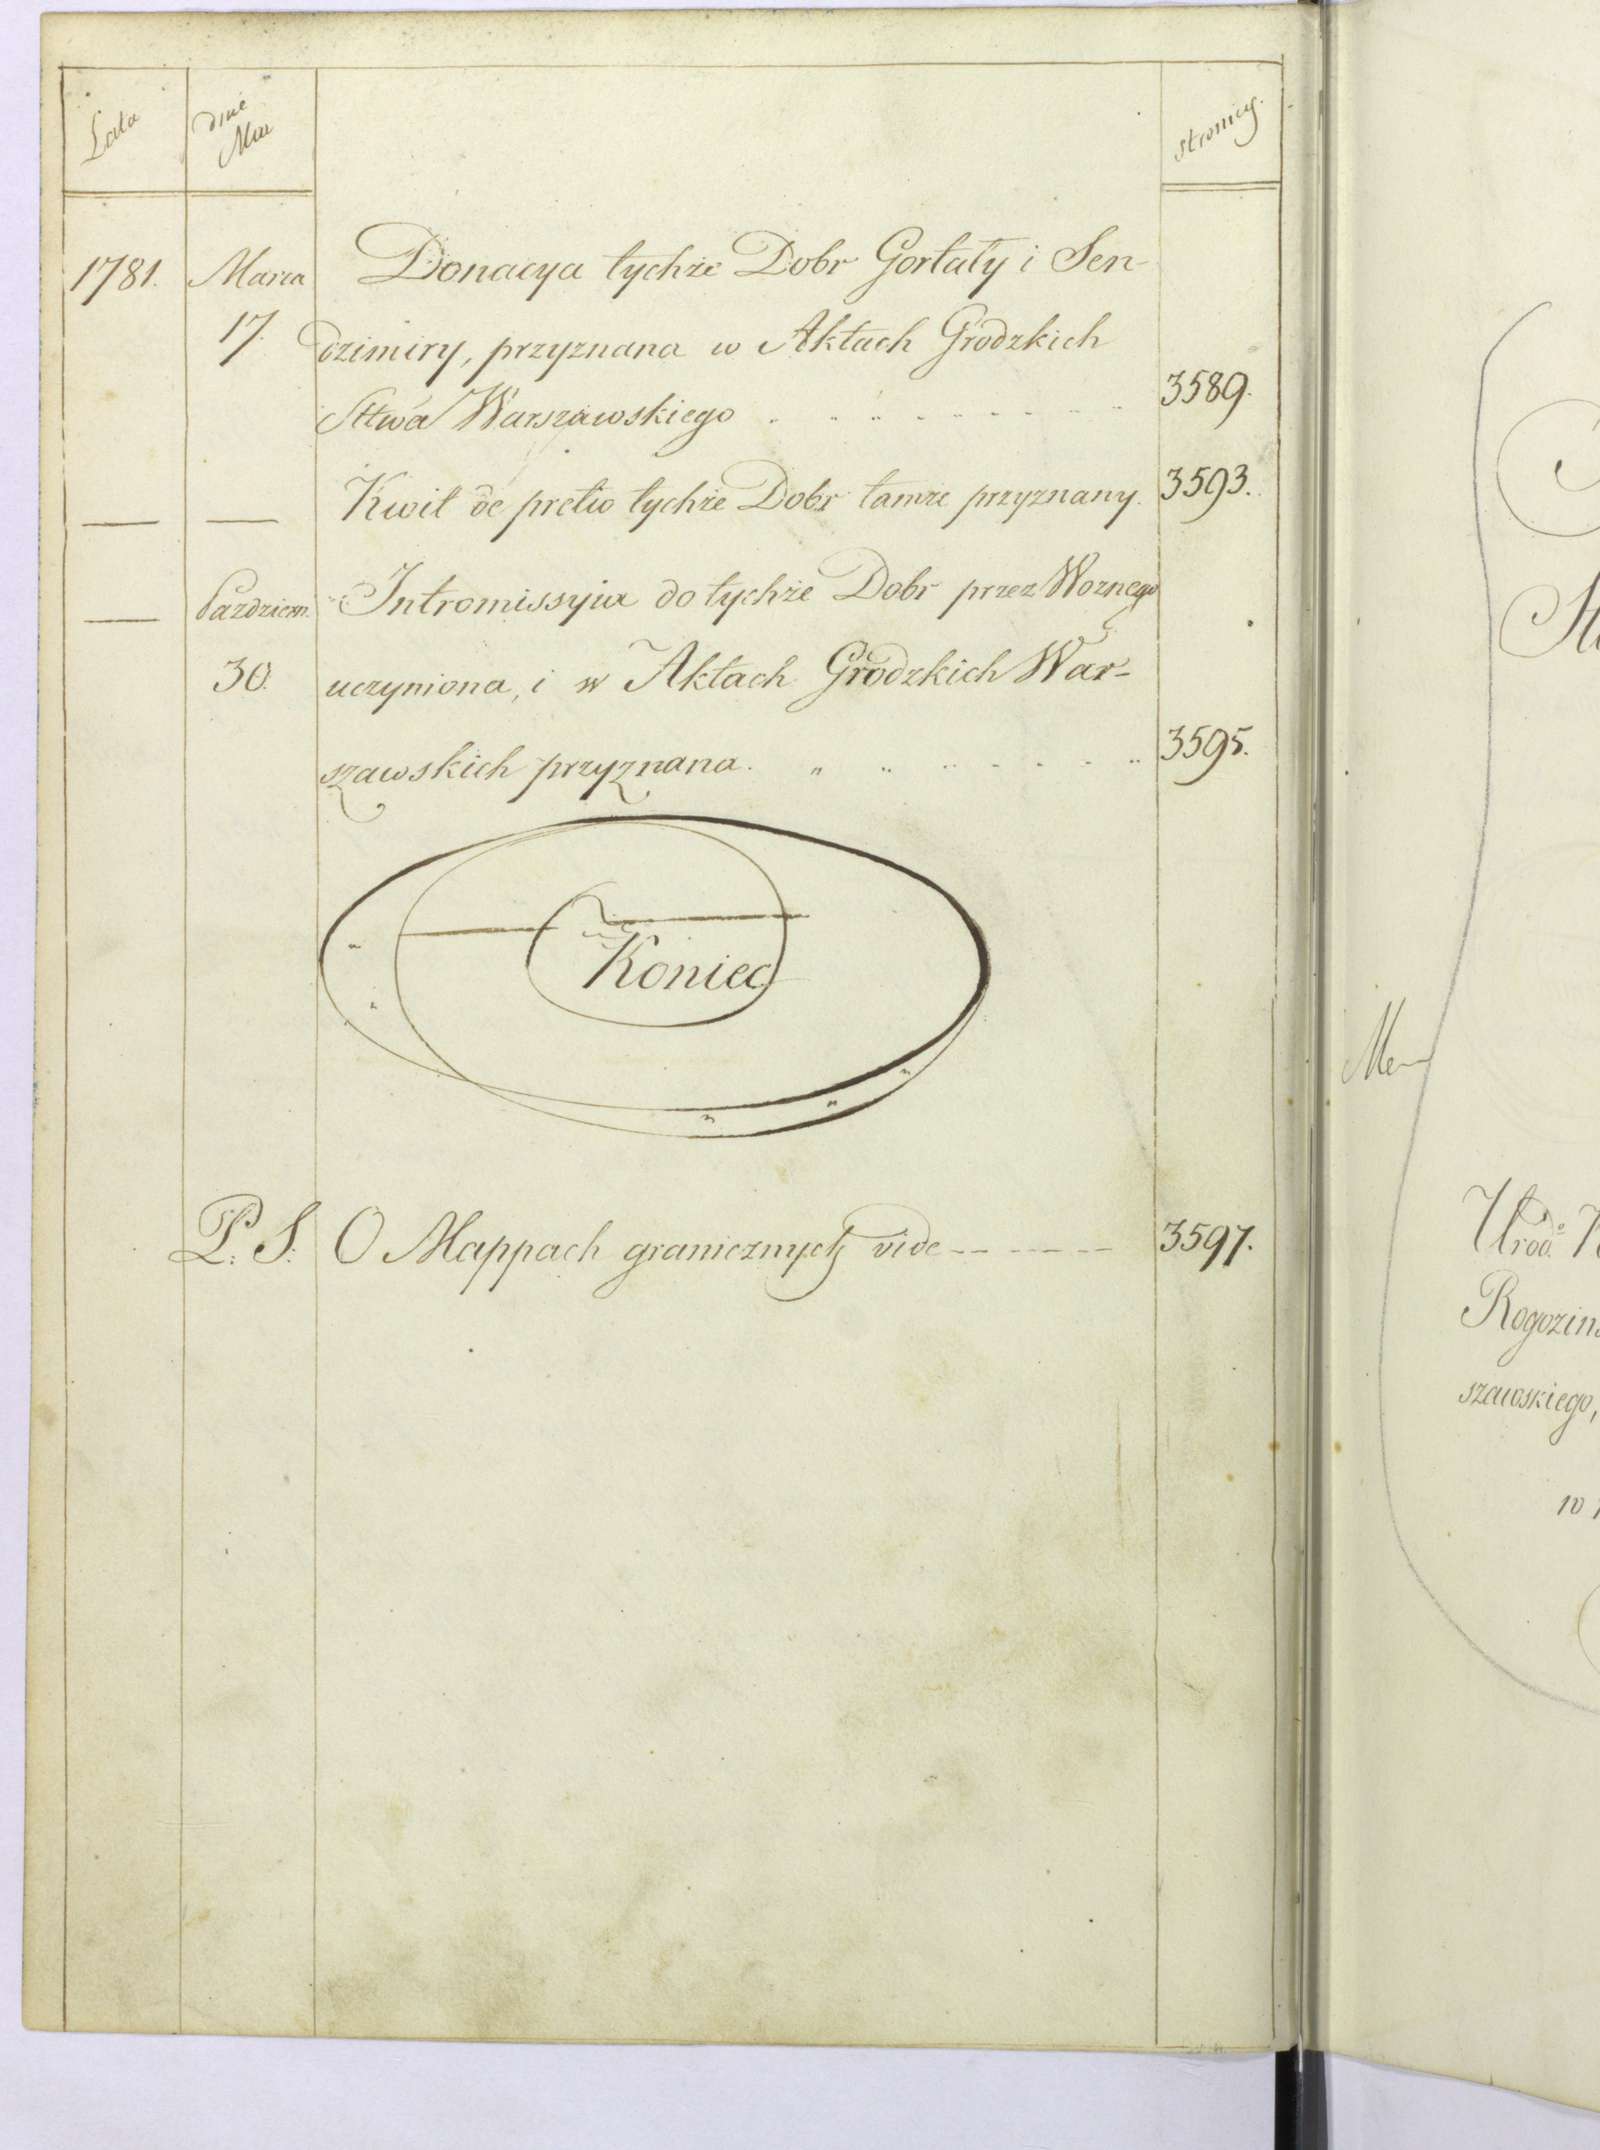 Lata dnie Mca stronicy.
1781. Marca Donacya tychże Dobr Gortaty i Sen-
17. dzimiry, przyznana w Aktach Grodzkich
Sttwa Warszawskiego 3589.
— — Kwit de pretio tychże Dobr tamże przyznany. 3593.
— Pazdziern. Intromissyia do tychże Dobr przez Woznego
30. uczyniona, i w Aktach Grodzkich War-
szawskich przyznana. 3595.
Koniec
P: S: O Mappach granicznych vide 3597.
Urod:
Rogozins
szawskiego,